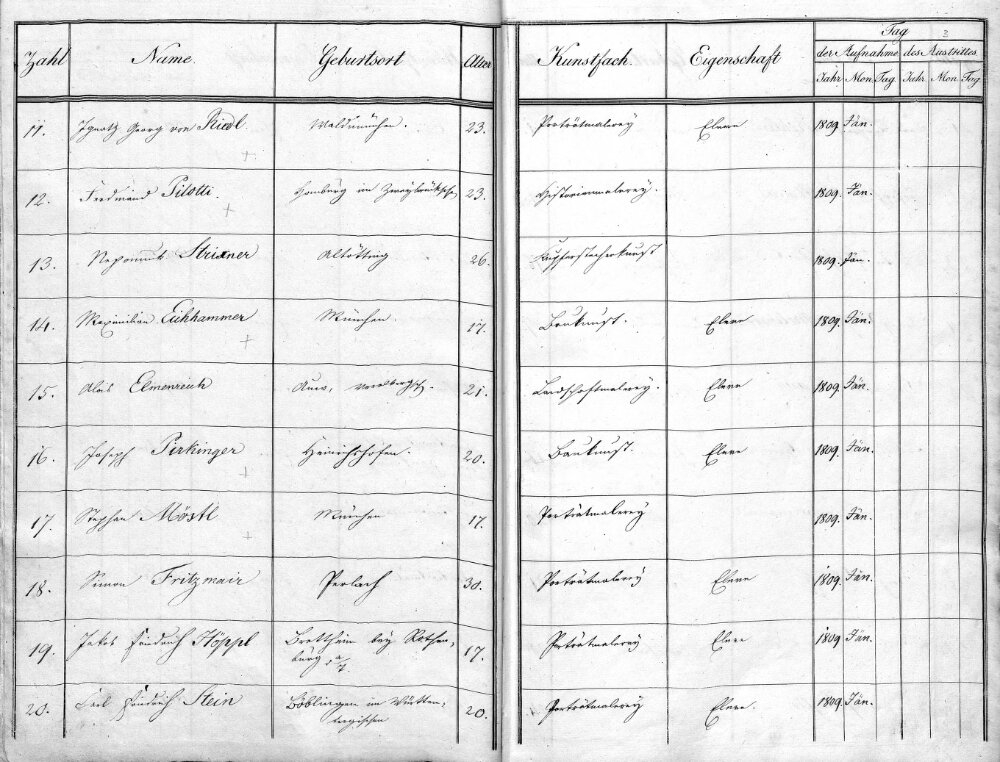 3
Zahl Name. Geburtsort Alter Kunstfach. Eigenschaft Tag
der Aufnahme des Austrittes
Jahr Mon. Tag Jahr. Mon. Tag
11. Ignatz Georg von Riedl. Waldmünchen. 23. Porträtmalerey Eleve 1809. Jän.
12. Ferdinand Pilotti Homburg im Zweybrückschen 23. Historienmalerey. 1809. Jän.
13. Nepomuk Strixner Altötting 26. Kupferstecherkunst 1809. Jän.
14. Maximilian Eichhammer München. 17. Baukunst. Eleve 1809. Jän.
15. Alois Elmenreich 21. Landschaftmalerey. Eleve 1809. Jän.
16. Joseph Pirkinger Heinrichshofen. 20. Baukunst. Eleve 1809. Jän.
17. Stephan Möstl München 17. Porträtmalerey 1809. Jän.
18. Simon Fritzmair Perlach 30. Porträtmalerey Eleve 1809. Jän.
19. Jakob Friedrich Höppl Brettheim bey Rothen- 17. Porträtmalerey Eleve 1809. Jän.
burg a/T.
20. Carl Friedrich Stein Böblingen im Württem- 20. Porträtmalerey Eleve. 1809. Jän.
bergischen